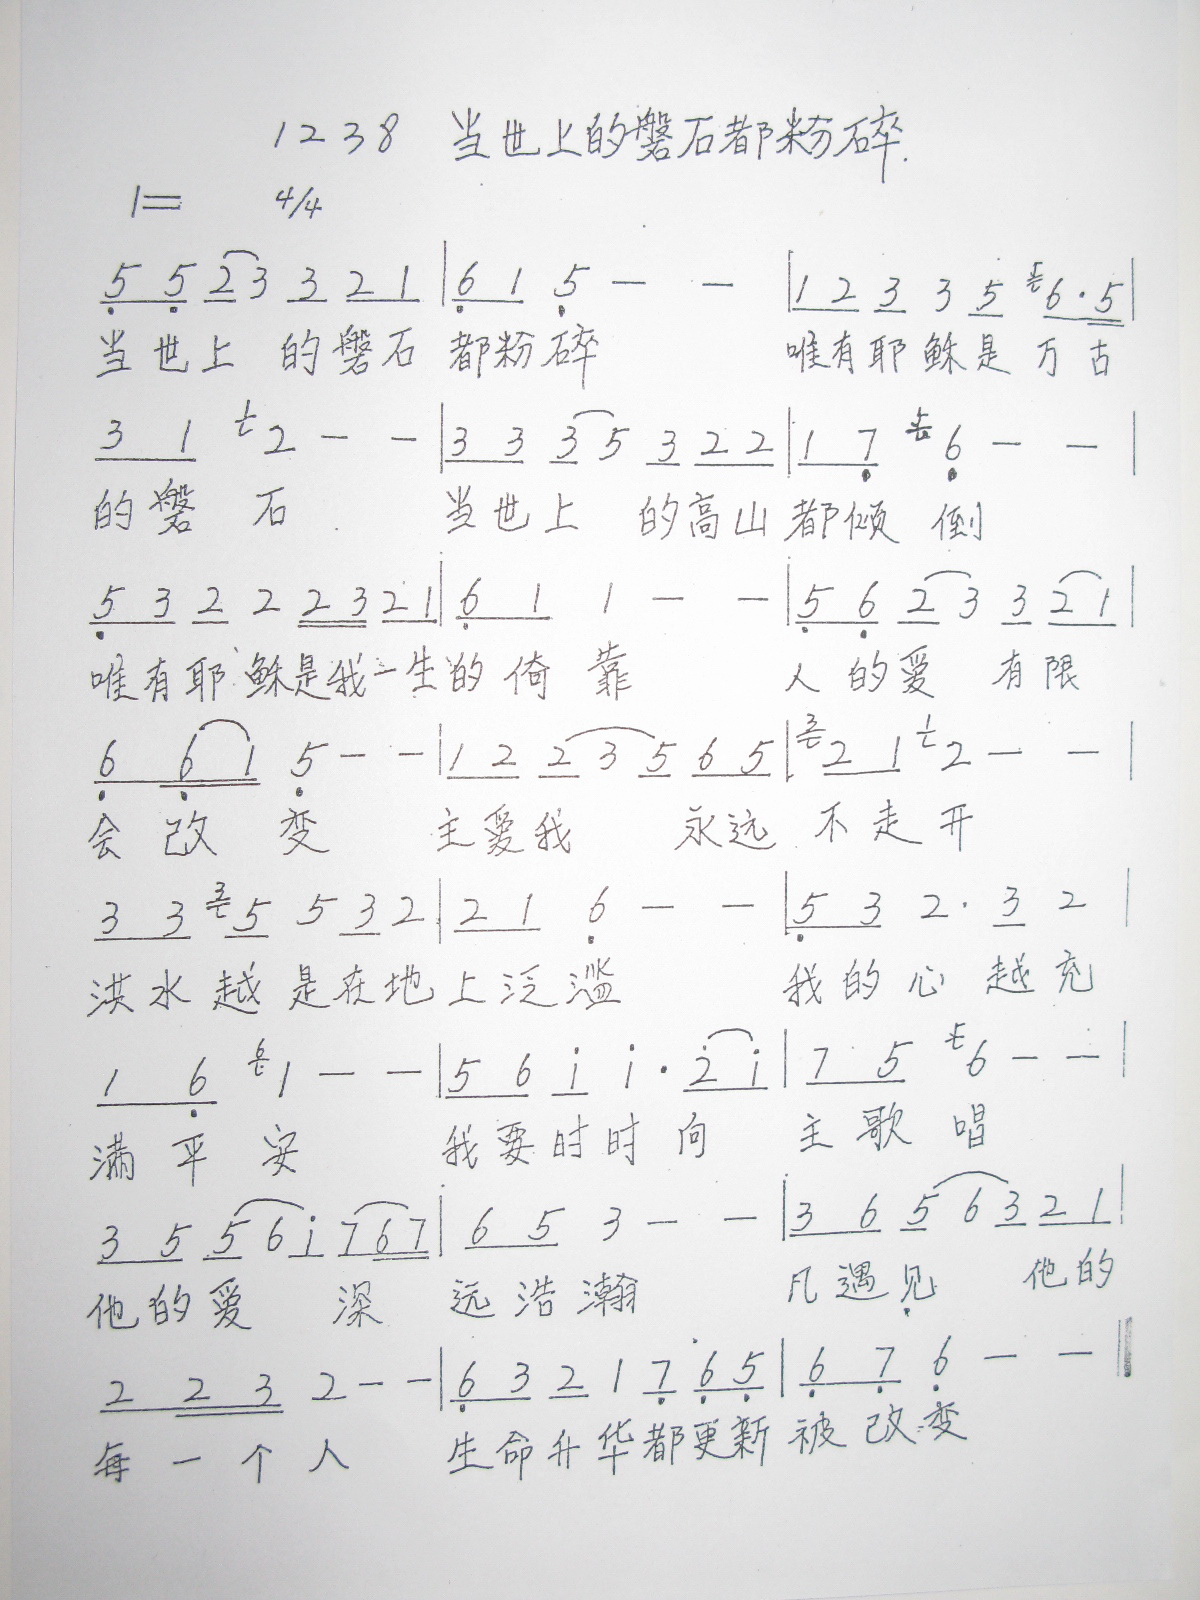 1238 当世上的磐石都粉碎.
1= 4/4
5 5 2 3 3 2 1 | 6 1 5 — — | 1 2 3 3 5 5 6·5 |
当世上 的磐石 都粉碎 唯有耶稣是万古
3 1 1 2 — — | 3 3 3 5 3 2 2 | 1 7 5 6 — — |
的磐 石 当世上 的高山 都倾 倒
5 3 2 2 2 3 2 1 | 6 1 1 — — | 5 6 2 3 3 2 1 |
唯有耶稣是我一生的倚 靠 人的爱 有限
6 6 1 5 — — | 1 2 2 3 5 6 5 | 3 2 1 1 2 — — |
会 改 变 主爱我 永远 不走开
3 3 3 5 5 3 2 | 2 1 6 — — | 5 3 2· 3 2 |
洪水越是在地上泛滥 我的心越充
1 6 6 1 — — | 5 6 i i· 2 i | 7 5 5 6 — — |
满 平 安 我要时时向 主歌唱
3 5 5 6 i 7 6 7 | 6 5 3 — — | 3 6 5 6 3 2 1 |
他的爱 深 远浩瀚 凡遇见 他的
2 2 3 2 — — | 6 3 2 1 7 6 5 | 6 7 6 — — ‖
每一个人 生命升华都更新被改变